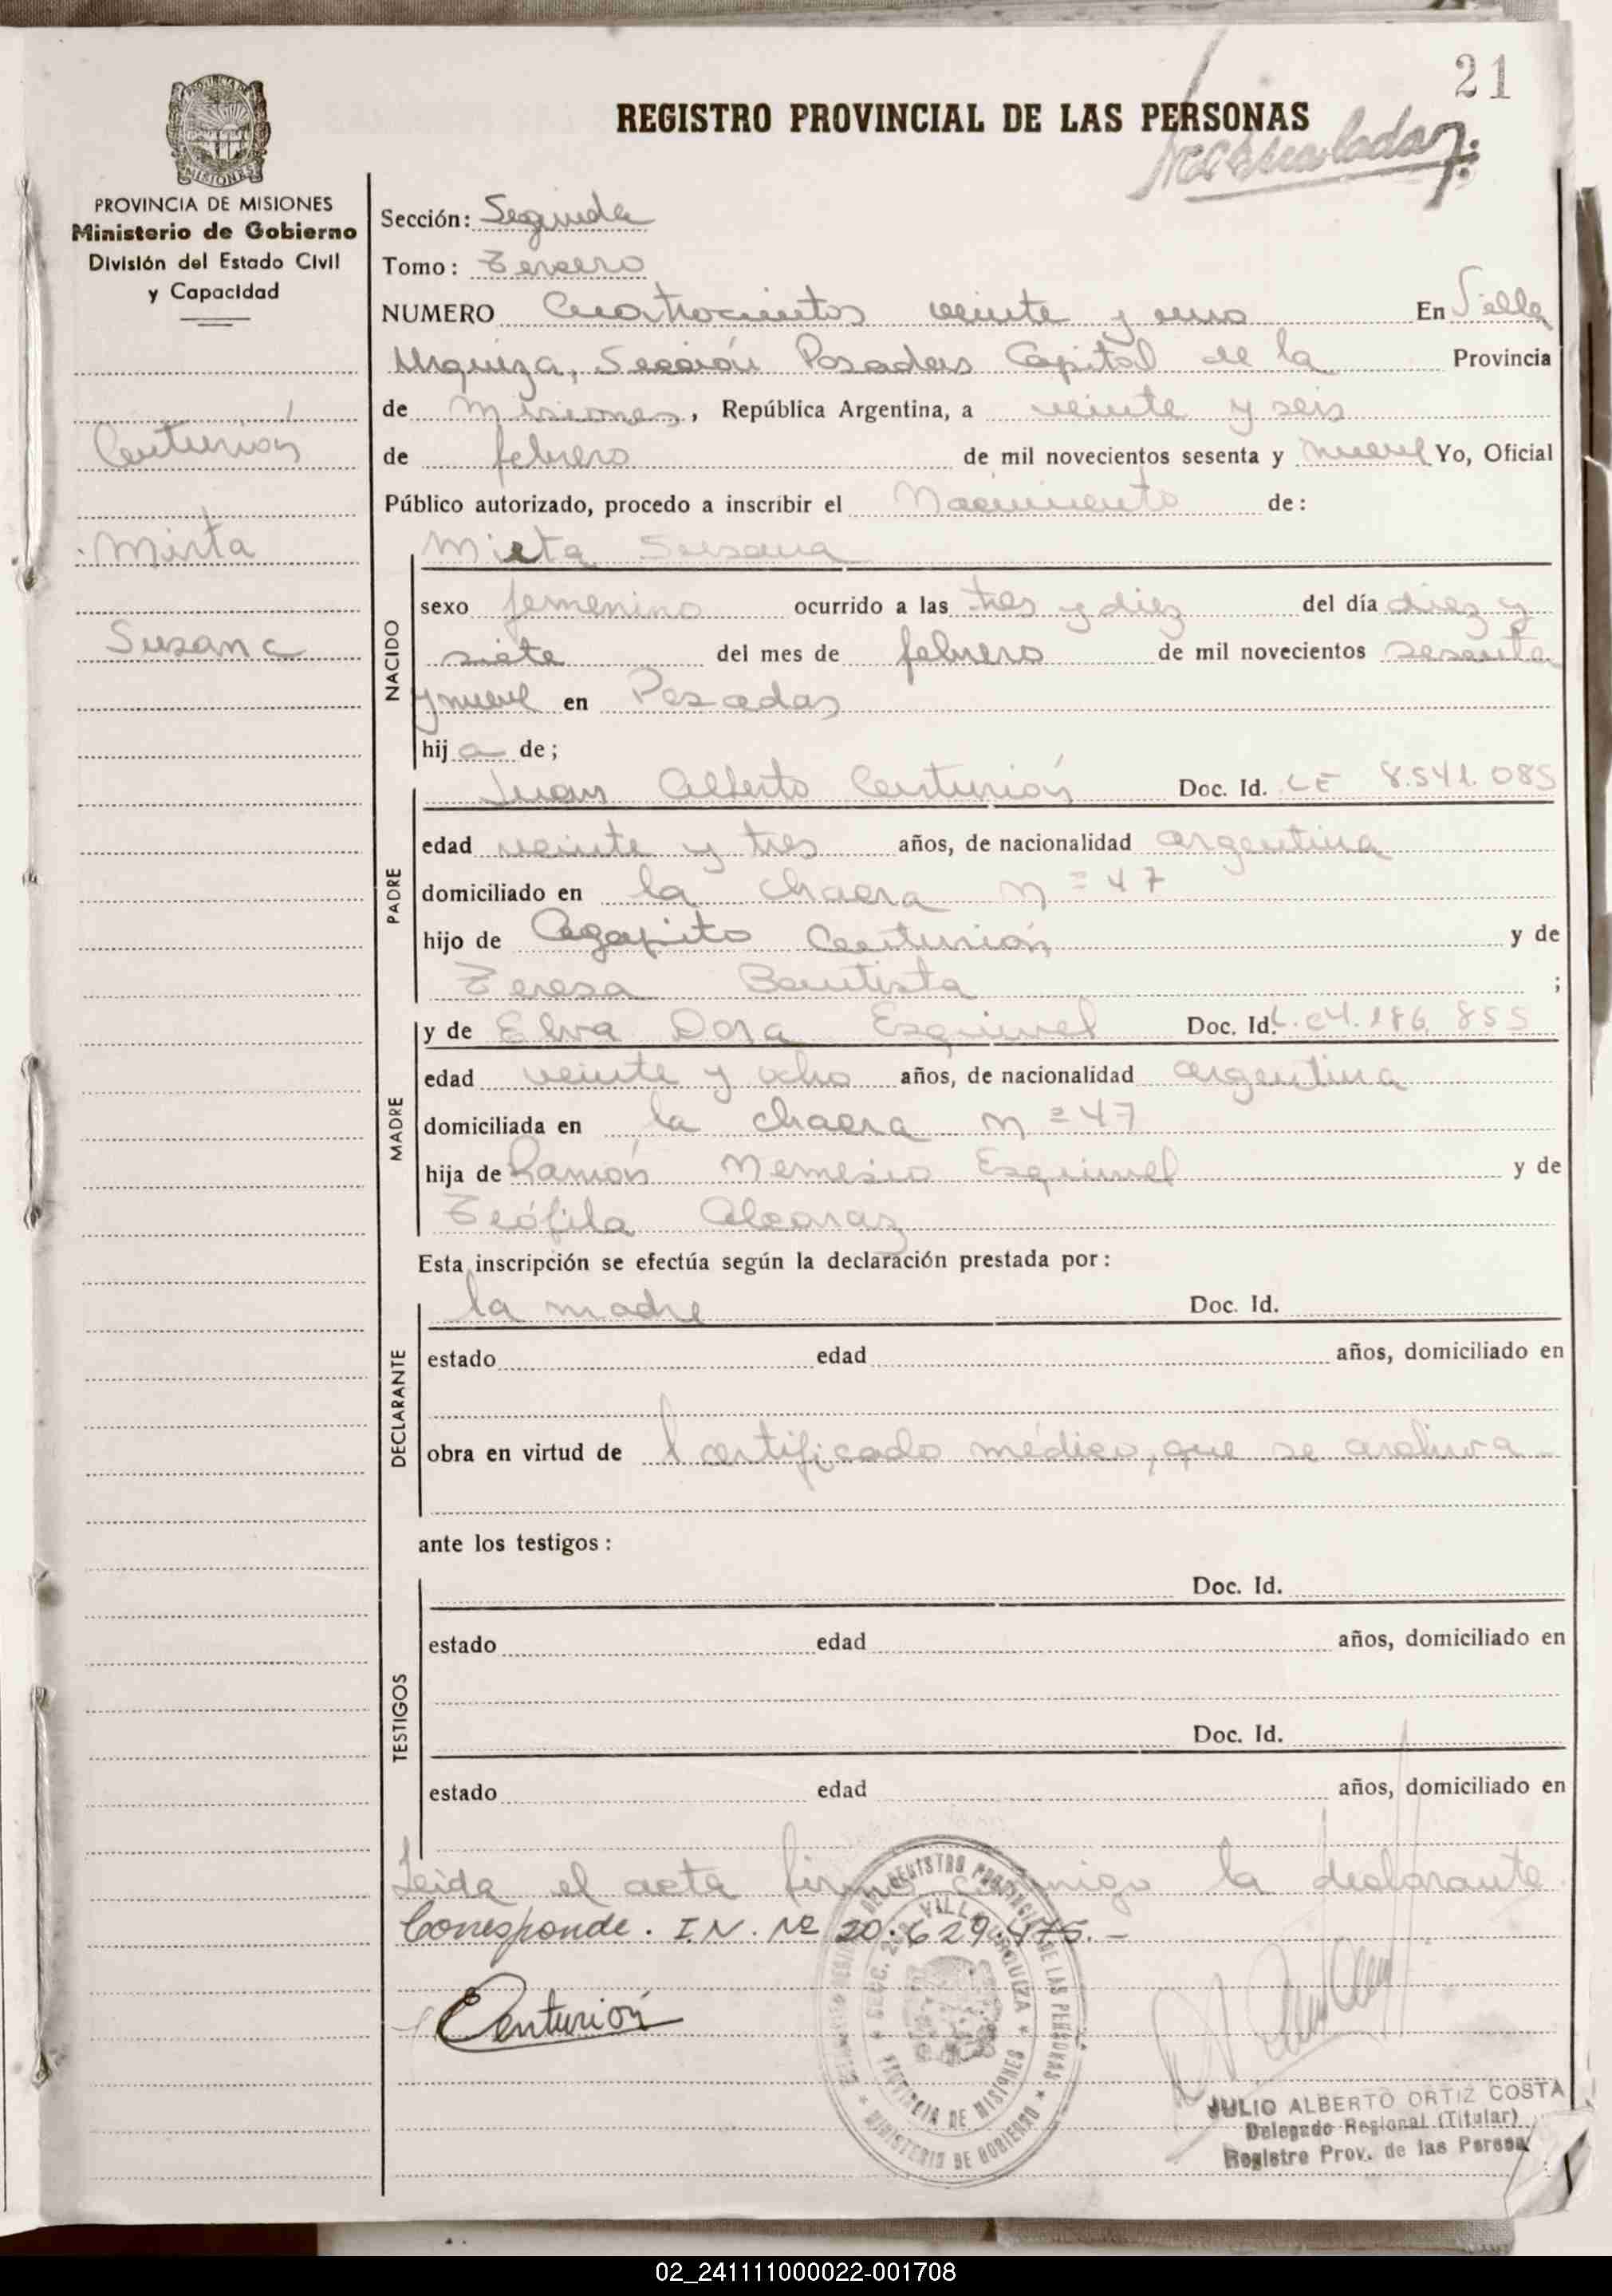 21
REGISTRO PROVINCIAL DE LAS PERSONAS
PROVINCIA DE MISIONES
Ministerio de Gobierno
División del Estado Civil
y Capacidad
Centurión
Mirta
Susana
Sección: Segunda
Tomo: Tercero
NUMERO Cuatrocientos veinte y uno En Villa
Urquiza, Sección Posadas Capital de la Provincia
de Misiones, República Argentina, a veinte y seis
de febrero de mil novecientos sesenta y nueve Yo, Oficial
Público autorizado, procedo a inscribir el Nacimiento de:
Mirta Susana
NACIDO
sexo femenino ocurrido a las tres y diez del día diez y
siete del mes de febrero de mil novecientos sesenta
y nueve en Posadas
hija de;
PADRE
Juan Alberto Centurión Doc. Id. LE 8.541.085
edad veinte y tres años, de nacionalidad argentina
domiciliado en la chacra nº 47
hijo de Agapito Centurión y de
Teresa Bautista ;
MADRE
y de Elva Dora Esquivel Doc. Id. L.C4.186.855
edad veinte y ocho años, de nacionalidad argentina
domiciliada en la chacra nº 47
hija de Ramón Nemesio Esquivel y de
Teófila Alcaraz
Esta inscripción se efectúa según la declaración prestada por:
DECLARANTE
la madre Doc. Id.
estado edad años, domiciliado en
obra en virtud de certificado médico, que se archiva
ante los testigos:
TESTIGOS
Doc. Id.
estado edad años, domiciliado en
Doc. Id.
estado edad años, domiciliado en
Leida el acta firma conmigo la declarante
Corresponde. I.N. Nº 20.629.475.-
Centurión
REGISTRO PROVINCIAL DE LAS PERSONAS
SECC. 2da VILLA URQUIZA
PROVINCIA DE MISIONES
MINISTERIO DE GOBIERNO
JULIO ALBERTO ORTIZ COSTA
Delegado Regional (Titular)
Registro Prov. de las Person
02_241111000022-001708